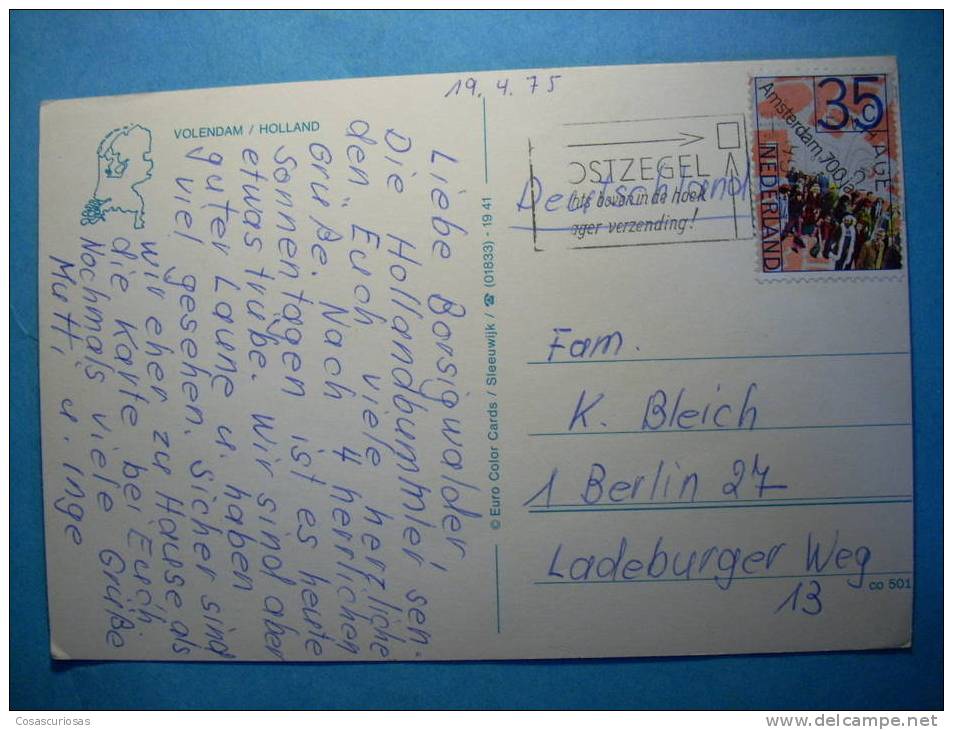 19.4.75
VOLENDAM / HOLLAND
Liebe Borsigwalder,
Die Hollandbummler sen-
den Euch viele herzliche
Grüße. Nach 4 herrlichen
Sonnentagen ist es heute
etwas trübe. Wir sind aber
guter Laune u. haben
viel gesehen. Sicher sind
wir eher zu Hause als
die Karte bei Euch
Nochmals viele Grüße
Mutti u. Inge
© Euro Color Cards / Sleeuwijk / ☎ (01833) - 19 41
OSTZEGEL
hts boven in de hoek
ager verzending!
Deutschland
35
Amsterdam 700 jaar
NEDERLAND
Fam.
K. Bleich
1 Berlin 27
Ladeburger Weg
13
co 501
Cosascuriosas
www.delcampe.net